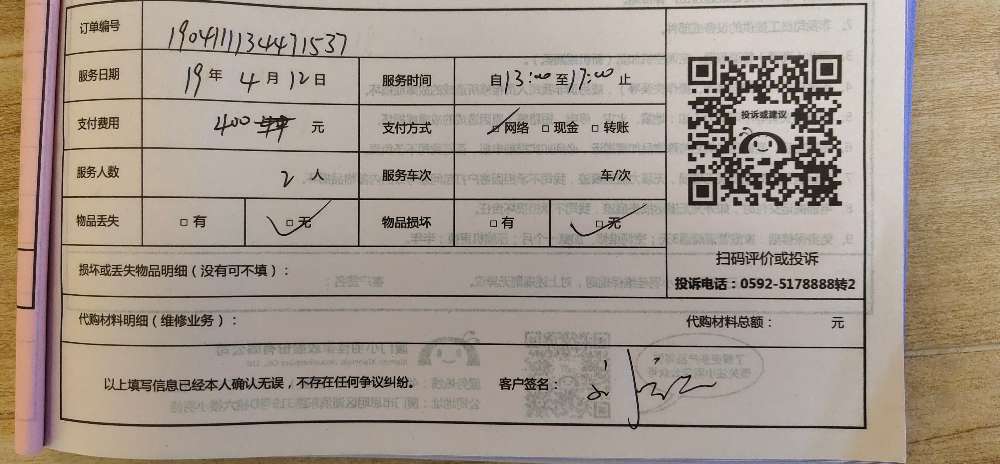 订单编号 1904111134471537
服务日期 19年4月12日 服务时间 自13:00至17:00止
支付费用 400 元 支付方式 ☑网络 □现金 □转账
服务人数 2人 服务车次 车/次
物品丢失 □有 ☑无 物品损坏 □有 ☑无
损坏或丢失物品明细（没有可不填）：
投诉或建议
扫码评价或投诉
投诉电话：0592-5178888转2
代购材料明细（维修业务）： 代购材料总额： 元
以上填写信息已经本人确认无误，不存在任何争议纠纷。 客户签名：